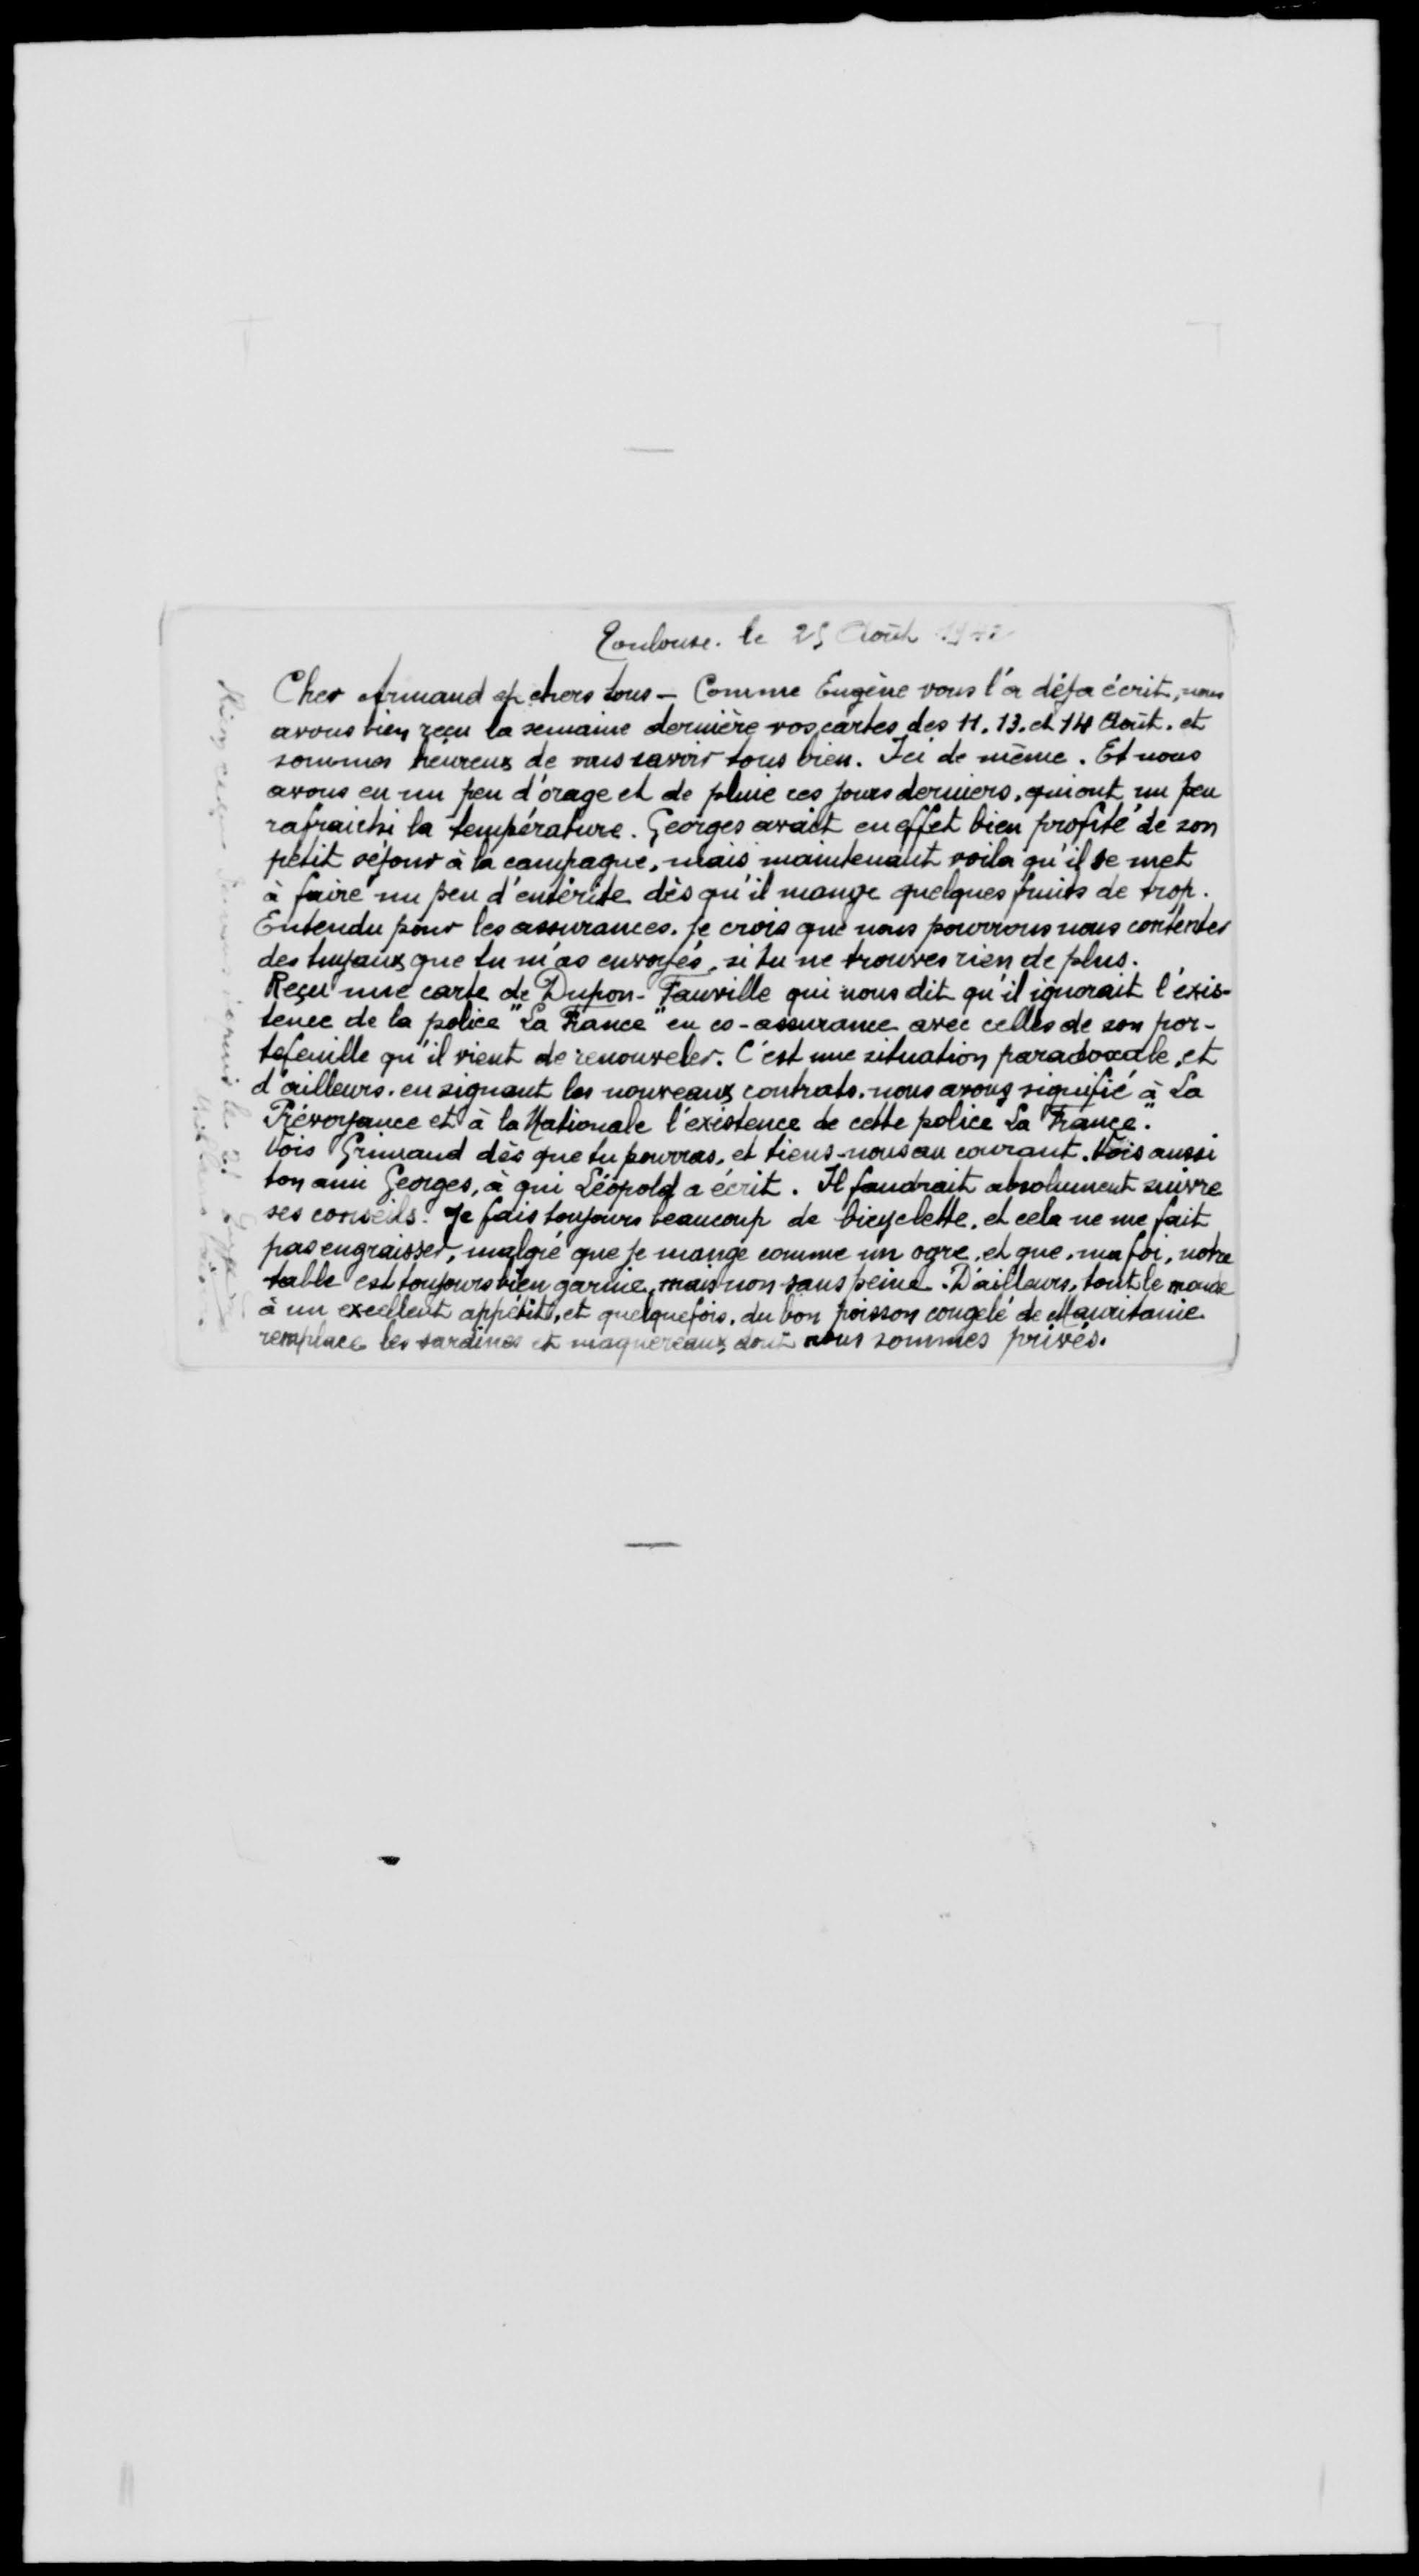 Toulouse. le 25 Août 1942
Cher Armand et chers tous - Comme Eugène vous l'a déja écrit, nous
avons bien reçu la semaine dernière vos cartes des 11. 13. et 14 Août. et
sommes heureux de vous savoir tous bien. Ici de même. Et nous
avons eu un peu d'orage et de pluie ces jours derniers, qui ont un peu
rafraichi la température. Georges avait en effet bien profité de son
petit séjour à la campagne, mais maintenant voila qu'il se met
à faire un peu d'entérite dès qu'il mange quelques fruits de trop.
Entendu pour les assurances. Je crois que nous pourrons nous contenter
des tuyaux que tu m'as envoyés, si tu ne trouves rien de plus.
Reçu une carte de Dupon-Fauville qui nous dit qu'il ignorait l'exis-
tence de la police "La France" en co-assurance avec celles de son por-
tefeuille qu'il vient de renouveler. C'est une situation paradoxale, et
d'ailleurs. en signant les nouveaux contrats. nous avons signifié à La
Prévoyance et à la Nationale l'existence de cette police "La France".
Vois Grimaud dès que tu pourras, et tiens-nous au courant. Vois aussi
ton ami Georges, à qui Léopold a écrit. Il faudrait absolument suivre
ses conseils. Je fais toujours beaucoup de bicyclette, et cela ne me fait
pas engraisser, malgré que je mange comme un ogre, et que, ma foi, notre
table est toujours bien garnie, mais non sans peine. D'ailleurs, tout le monde
à un excellent appétit, et quelquefois, du bon poisson congelé de Mauritanie
remplace les sardines et maquereaux dont nous sommes privés.